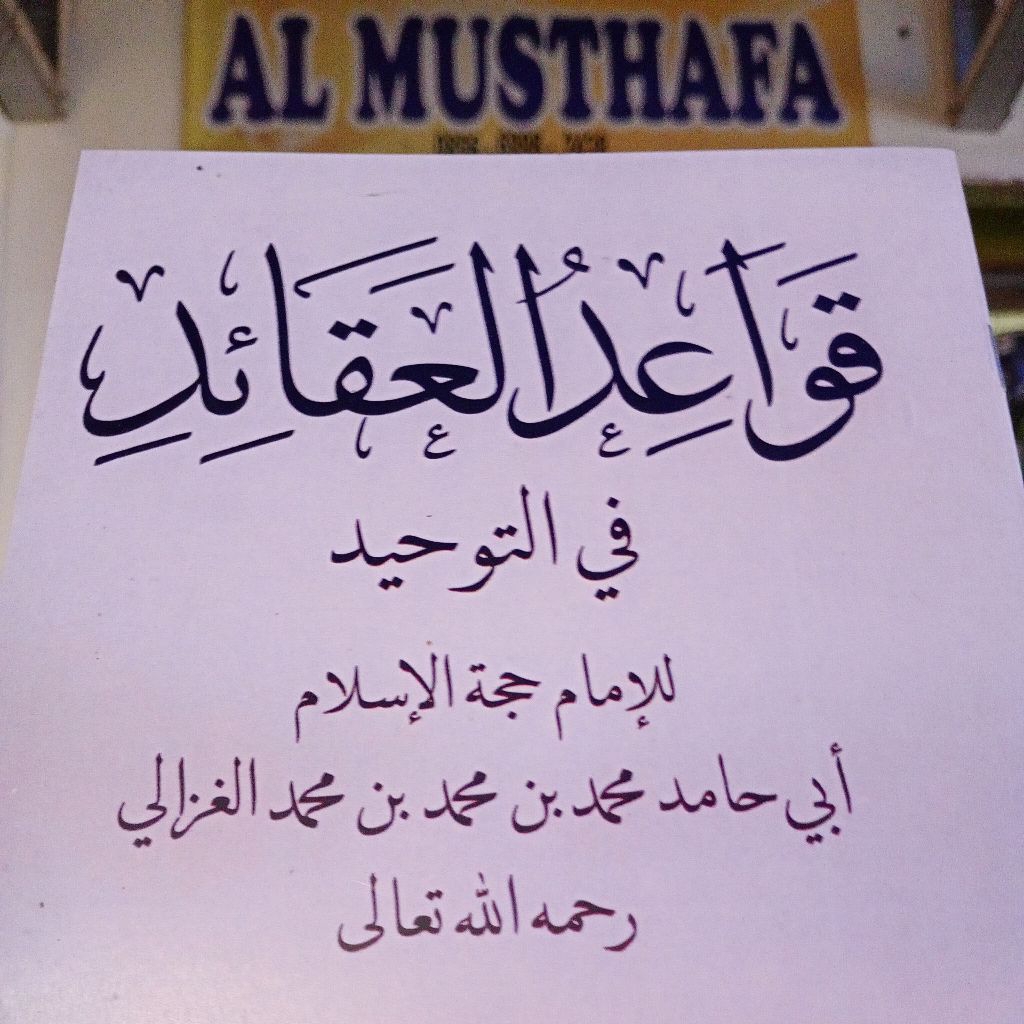 AL MUSTHAFA
قَوَاعِدُ الْعَقَائِدِ
في التوحيد
للإمام حجة الإسلام
أبي حامد محمد بن محمد بن محمد الغزالي
رحمه الله تعالى